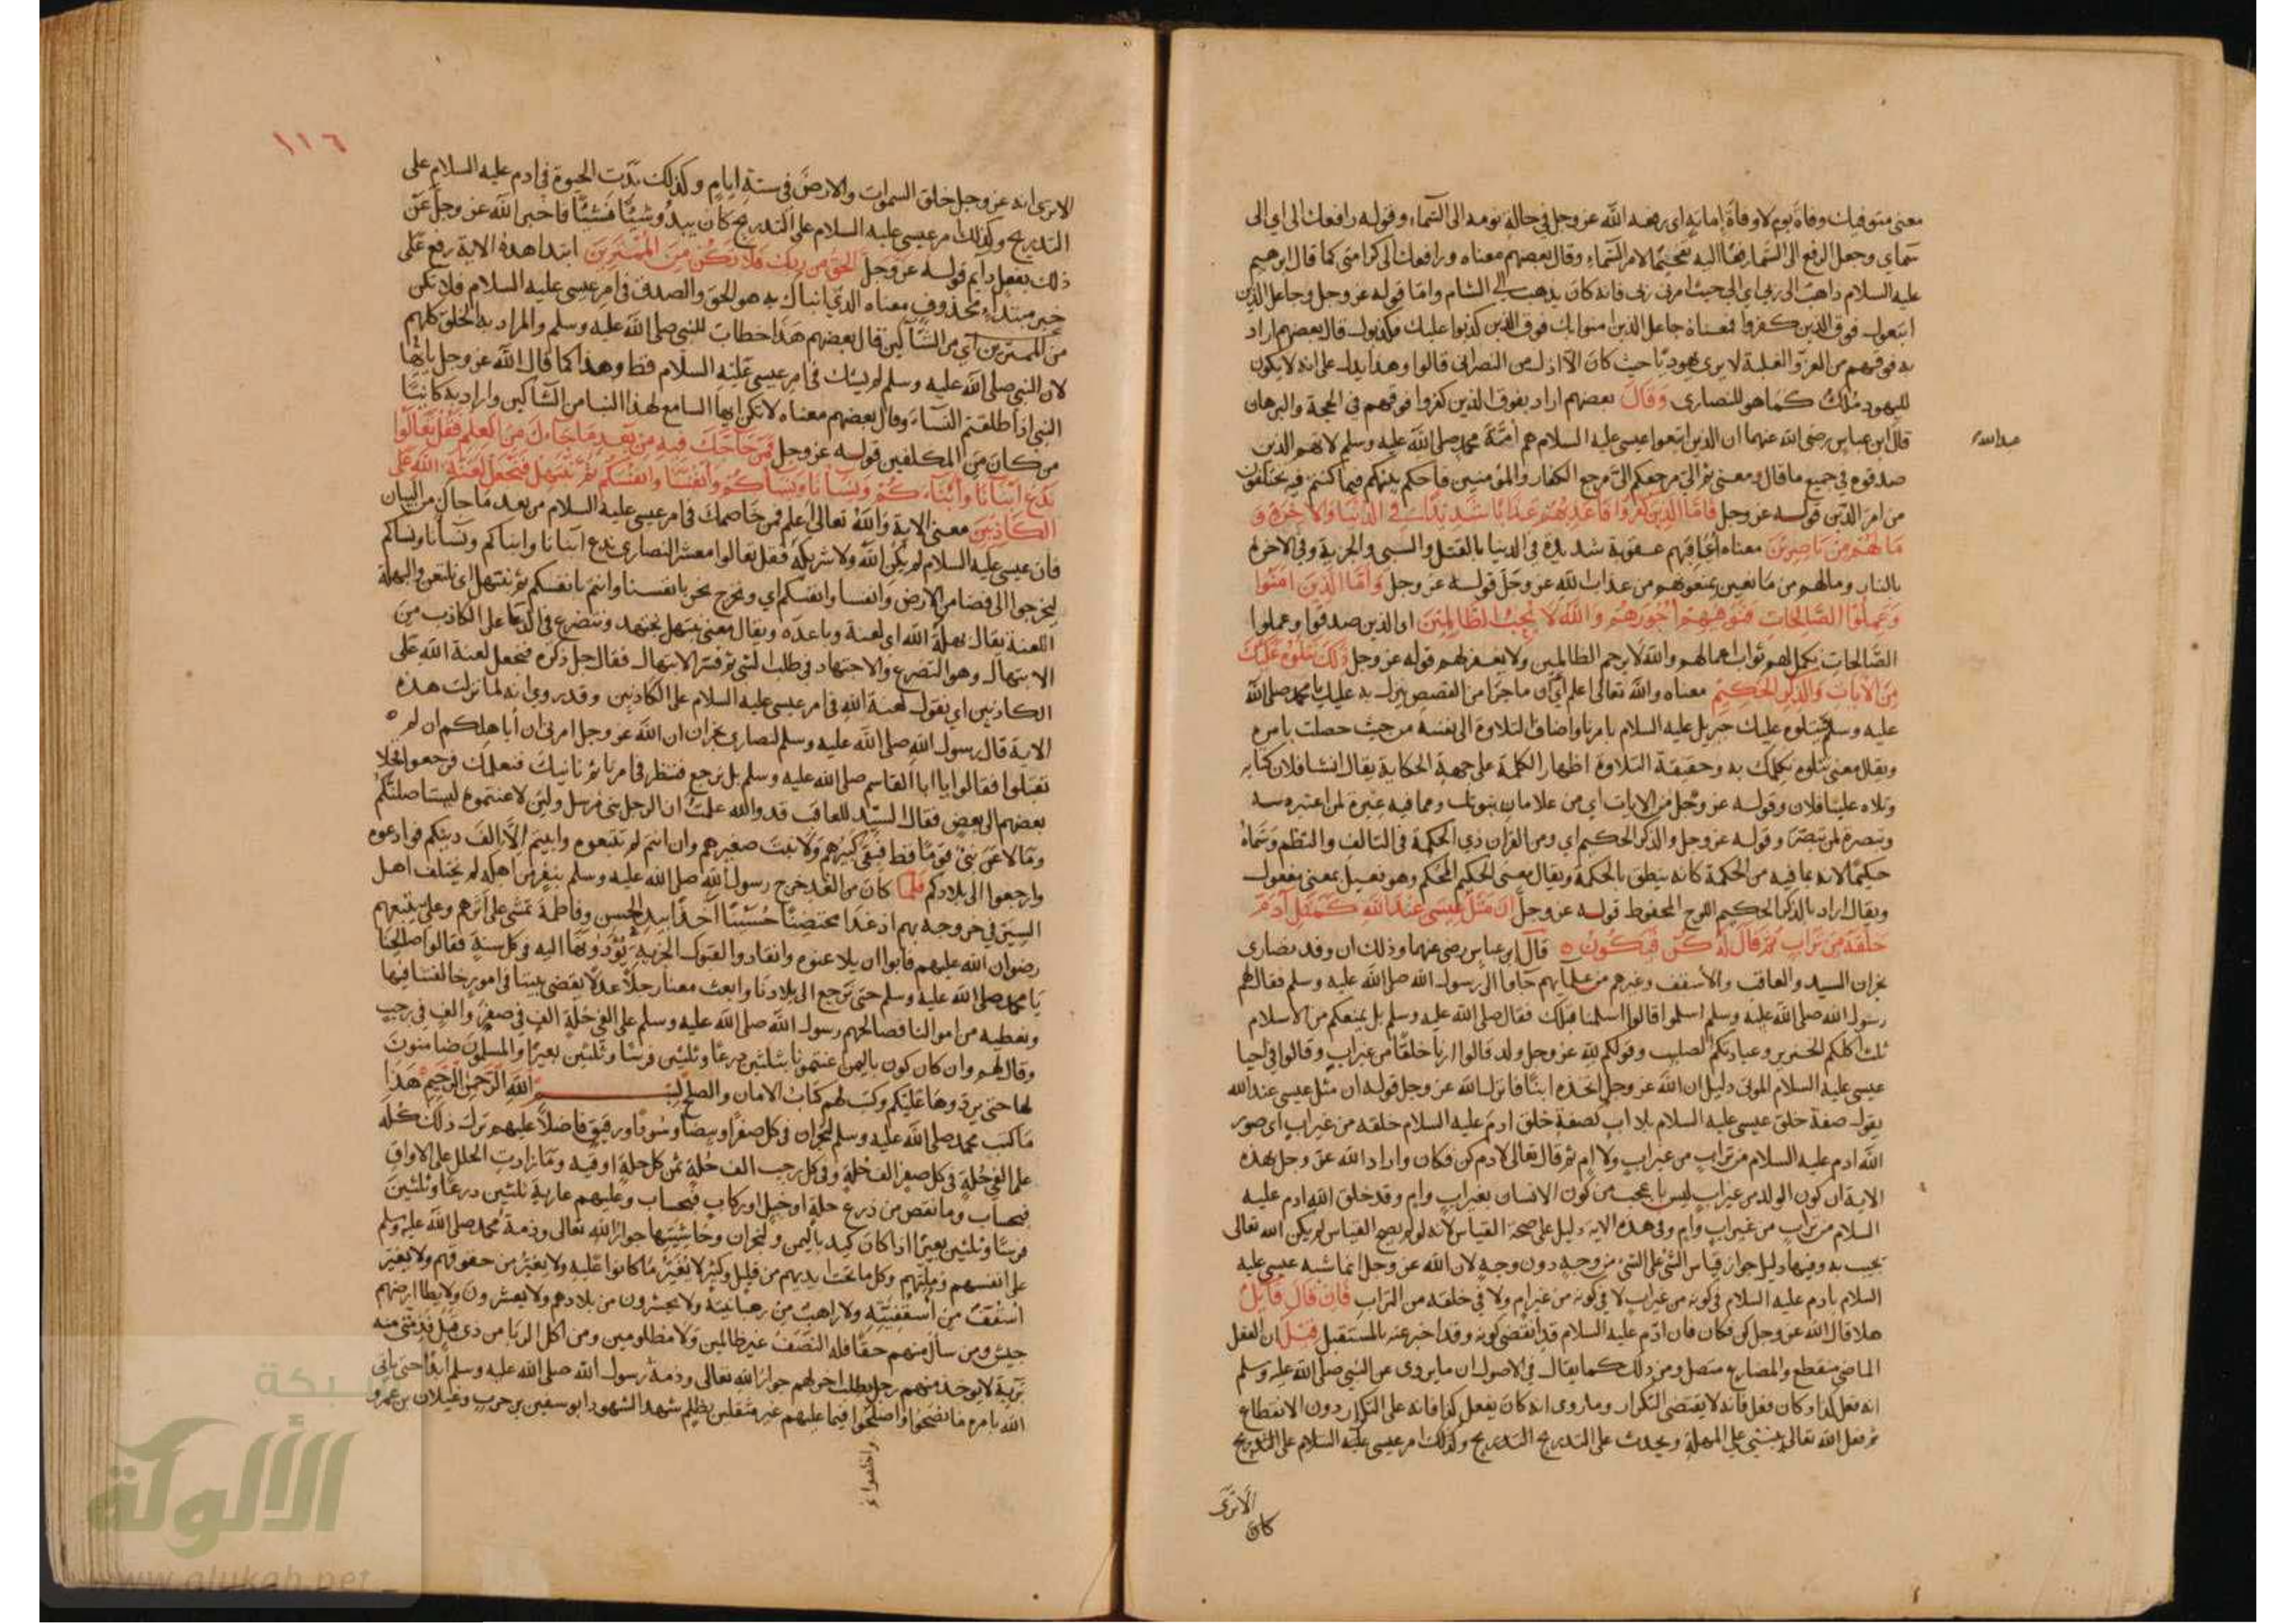 معنى متوفيك وفاة نوم لا وفاة إماتة اي رفعه الله عز وجل في حالة نومه الى السماء وقوله رافعك الى اي الى
سماي وجعل الرفع الى السما رفعا اليه تفخيما لامر السماء وقال بعضهم معناه ورافعك الى كرامتي كما قال ابرهيم
عليه السلام ذاهب الى ربي اي الى حيث امرني ربي فانه كان يذهب الى الشام واما قوله عز وجل وجاعل الذين
اتبعوك فوق الذين كفروا فمعناه جاعل الذين امنوا بك فوق الذين كذبوا عليك وكذبوك قال بعضهم اراد
به فوقهم من العز والغلبة لا يرى يهوديا حيث كان الا اذل من النصراني قالوا وهذا يدل على انه لا يكون
لليهود ملك كما هو للنصارى وقال بعضهم اراد بفوق الذين كفروا فوقهم في الحجة والبرهان
قال ابن عباس رضي الله عنهما ان الذين اتبعوا عيسى عليه السلام هم امة محمد صلى الله عليه وسلم لانهم الذين
عبد الله
صدقوه في جميع ما قال ومعنى ثم الي مرجعكم الي مرجع الكفار والمؤمنين فاحكم بينكم فيما كنتم فيه تختلفون
من امر الدين قوله عز وجل فاما الذين كفروا فاعذبهم عذابا شديدا في الدنيا والاخرة و
ما لهم من ناصرين معناه اعاقبهم عقوبة شديدة في الدنيا بالقتل والسبي والجزية وفي الاخرة
بالنار وما لهم من مانعين يمنعونهم من عذاب الله عز وجل قوله عز وجل واما الذين امنوا
وعملوا الصالحات فنوفيهم اجورهم والله لا يحب الظالمين اي والذين صدقوا وعملوا
الصالحات نكمل لهم ثواب اعمالهم والله لا يرحم الظالمين ولا يغفر لهم قوله عز وجل ذلك نتلوه عليك
من الايات والذكر الحكيم معناه والله تعالى اعلم ان ما جرى من القصص ننزل به عليك يا محمد صلى الله
عليه وسلم يتلوه عليك جبريل عليه السلام بامرنا واضاف التلاوة الى نفسه من حيث حصلت بامره
ويقال معنى نتلوه نكلمك به وحقيقة التلاوة اظهار الكلمة على جهة الحكاية يقال انشا فلان كتابه
وتلاه علينا فلان وقوله عز وجل من الايات اي من علامات نبوتك ومما فيه عبرة لمن اعتبر به
وتبصرة لمن تبصر وقوله عز وجل والذكر الحكيم اي ومن القران ذي الحكمة في التاليف والنظم وسماه
حكيما لانه بما فيه من الحكمة كانه ينطق بالحكمة ويقال معنى الحكيم المحكم وهو فعيل بمعنى مفعول
ويقال اراد بالذكر الحكيم اللوح المحفوظ قوله عز وجل ان مثل عيسى عند الله كمثل آدم
خلقه من تراب ثم قال له كن فيكون قال ابن عباس رضي عنهما وذلك ان وفد نصارى
نجران السيد والعاقب والأسقف وغيرهم من علمايهم جاوا الى رسول الله صلى الله عليه وسلم فقال لهم
رسول الله صلى الله عليه وسلم اسلموا قالوا اسلمنا قبلك فقال صلى الله عليه وسلم بل يمنعكم من الاسلام
ثلث اكلكم الخنزير وعبادتكم الصليب وقولكم لله عز وجل ولد قالوا ارنا خلقا من غير اب وقالوا في احيا
عيسى عليه السلام الموتى دليل ان الله عز وجل اتخذه ابنا فانزل الله عز وجل قوله ان مثل عيسى عند الله
يقول صفة خلق عيسى عليه السلام بلا اب كصفة خلق ادم عليه السلام خلقه من غير اب اي صور
الله ادم عليه السلام من تراب من غير اب ولا ام ثم قال تعالى لادم كن فكان واراد الله عز وجل بهذه
الاية ان كون الولد من غير اب ليس باعجب من كون الانسان بغير اب وام وقد خلق الله ادم عليه
السلام من تراب من غير اب وام وفي هذه الاية دليل على صحة القياس لانه لو لم يصح القياس لم يكن الله تعالى
يجيب به وفيها دليل جواز قياس الشي على الشي من وجه دون وجه لان الله عز وجل انما شبه عيسى عليه
السلام بادم عليه السلام في كونه من غير اب لا في كونه من غير ام ولا في خلقه من التراب فان قال قايل
هلا قال الله عز وجل كن فكان فان ادم عليه السلام قد انقضى كونه وقد اخبر عنه بالمستقبل قيل ان الفعل
الماضي منقطع والمضارع متصل ومن ذلك كما يقال في الاصول ان ما يروى عن النبي صلى الله عليه وسلم
انه فعل كذا وكان فعل فانه لا يقتضي التكرار وما روى انه كان يفعل كذا فانه على التكرار دون الانقطاع
ثم فعل الله تعالى على المهلة ويحدث على التدريج التدريج وكذلك امر عيسى عليه السلام على التدريج
الا ترى
كان
١١٦
الا ترى انه عز وجل خلق السموات والارض في ستة ايام وكذلك بدت الحيوة في ادم عليه السلام على
التدريج وكذلك امر عيسى عليه السلام على التدريج كان يبدو شيئا فشيئا فاخبر الله عز وجل عن
ذلك بفعل دايم قوله عز وجل الحق من ربك فلا تكن من الممترين ابتدا هذه الاية رفع على
خبر مبتداء محذوف معناه الذي انباك به هو الحق والصدق في امر عيسى عليه السلام فلا تكن
من الممترين اي من الشاكين قال بعضهم هذا خطاب للنبي صلى الله عليه وسلم والمراد به الخلق كلهم
لان النبي صلى الله عليه وسلم لم يشك في امر عيسى عليه السلام قط وهذا كما قال الله عز وجل يا ايها
النبي اذا طلقتم النساء وقال بعضهم معناه لا تكن ايها السامع لهذا النبا من الشاكين واراد به كاينا
من كان من المكلفين قوله عز وجل فمن حاجك فيه من بعد ما جاءك من العلم فقل تعالوا
ندع ابناءنا وابناءكم ونساءنا ونساءكم وانفسنا وانفسكم ثم نبتهل فنجعل لعنة الله على
الكاذبين معنى الاية والله تعالى اعلم فمن خاصمك في امر عيسى عليه السلام من بعد ما جاك من البيان
فان عيسى عليه السلام لم يكن الله ولا شريكه فقل تعالوا معشر النصارى ندع ابنانا وابناكم ونسانا ونساكم
ليخرجوا الى فضا من الارض وانفسنا وانفسكم اي ونخرج نحن بانفسنا وانتم بانفسكم ثم نبتهل اي نلتعن والبهلة
اللعنة يقال بهله الله اي لعنه وباعده ويقال معنى نبتهل نجتهد ونتضرع في الدعا على الكاذب من
الابتهال وهو التضرع والاجتهاد في طلب الشي ثم فسر الابتهال فقال جل ذكره فنجعل لعنة الله على
الكاذبين اي نقول لعنة الله في امر عيسى عليه السلام على الكاذبين وقد روي انه لما نزلت هذه
الاية قال رسول الله صلى الله عليه وسلم لنصارى نجران ان الله عز وجل امرني ان أباهلكم ان لم
تقبلوا فقالوا يا ابا القاسم صلى الله عليه وسلم بل نرجع فننظر في امرنا ثم ناتيك فنعلمك فرجعوا فخلا
بعضهم الى بعض فقال السيد للعاقب قد والله علمت ان الرجل نبي مرسل ولين لاعنتموه ليستاصلنكم
وما لاعن نبي قوما قط فبقي كبيرهم ولا نبت صغيرهم وان انتم لم تتبعوه وابيتم الا الف دينكم فوادعوه
وارجعوا الى بلادكم فلما كان من الغد خرج رسول الله صلى الله عليه وسلم بنفر من اهله لم يختلف اهل
السير في خروجه بهم اذ غدا محتضنا حسينا آخذا بيد الحسن وفاطمة تمشي على اثرهم وعلي يتبعهم
رضوان الله عليهم فابوا ان يلاعنوه وانقادوا لقبول الجزية يؤدونها اليه في كل سنة فقالوا صالحنا
يا محمد صلى الله عليه وسلم حتى نرجع الى بلادنا وابعث معنا رجلا عدلا يقضي بيننا في امور خالفنا فيها
ونعطيه من اموالنا فصالحهم رسول الله صلى الله عليه وسلم على الفي حلة الف في صفر والف في رجب
وقال لهم وان كان كون باليمن اعنتمونا بثلثين درعا وثلثين فرسا وثلثين بعيرا والمسلمون ضامنون
لها حتى يردوها عليكم وكتب لهم كتاب الامان والصلح بسم الله الرحمن الرحيم هذا
ما كتب محمد صلى الله عليه وسلم لنجران في كل صفرا وبيضا وسودا ورقيق فاضلا عليهم ترك ذلك كله
على الفي حلة في كل صفر الف حلة وفي كل رجب الف حلة ثمن كل حلة اوقية وما زادت الحلل على الاواقي
فبحساب وما نقص من درع حلة او خيل او ركاب فبحساب وعليهم عارية ثلثين درعا وثلثين
فرسا وثلثين بعيرا اذا كان كيد باليمن ولنجران وحاشيتها جوار الله تعالى وذمة محمد صلى الله عليه وسلم
على انفسهم وملتهم وكل ما تحت ايديهم من قليل وكثير لا نغير ما كانوا عليه ولا يغير من حقوقهم ولا يغير
اسقف من اسقفيته ولا راهب من رهبانيته ولا يحشرون من بلادهم ولا يعشرون ولا يطا ارضهم
جيش ومن سأل منهم حقا فله النصف غير ظالمين ولا مظلومين ومن اكل الربا من ذي قبل فذمتي منه
برية لا يوخذ منهم رجل بطلب اخر لهم جوار الله تعالى وذمة رسول الله صلى الله عليه وسلم ابدا حتى ياتي
الله بامره ما نصحوا واصلحوا فيما عليهم غير مثقلين بظلم شهد الشهود ابو سفين بن حرب وغيلان بن عمرو
شبكة
الألوكة
www.alukah.net